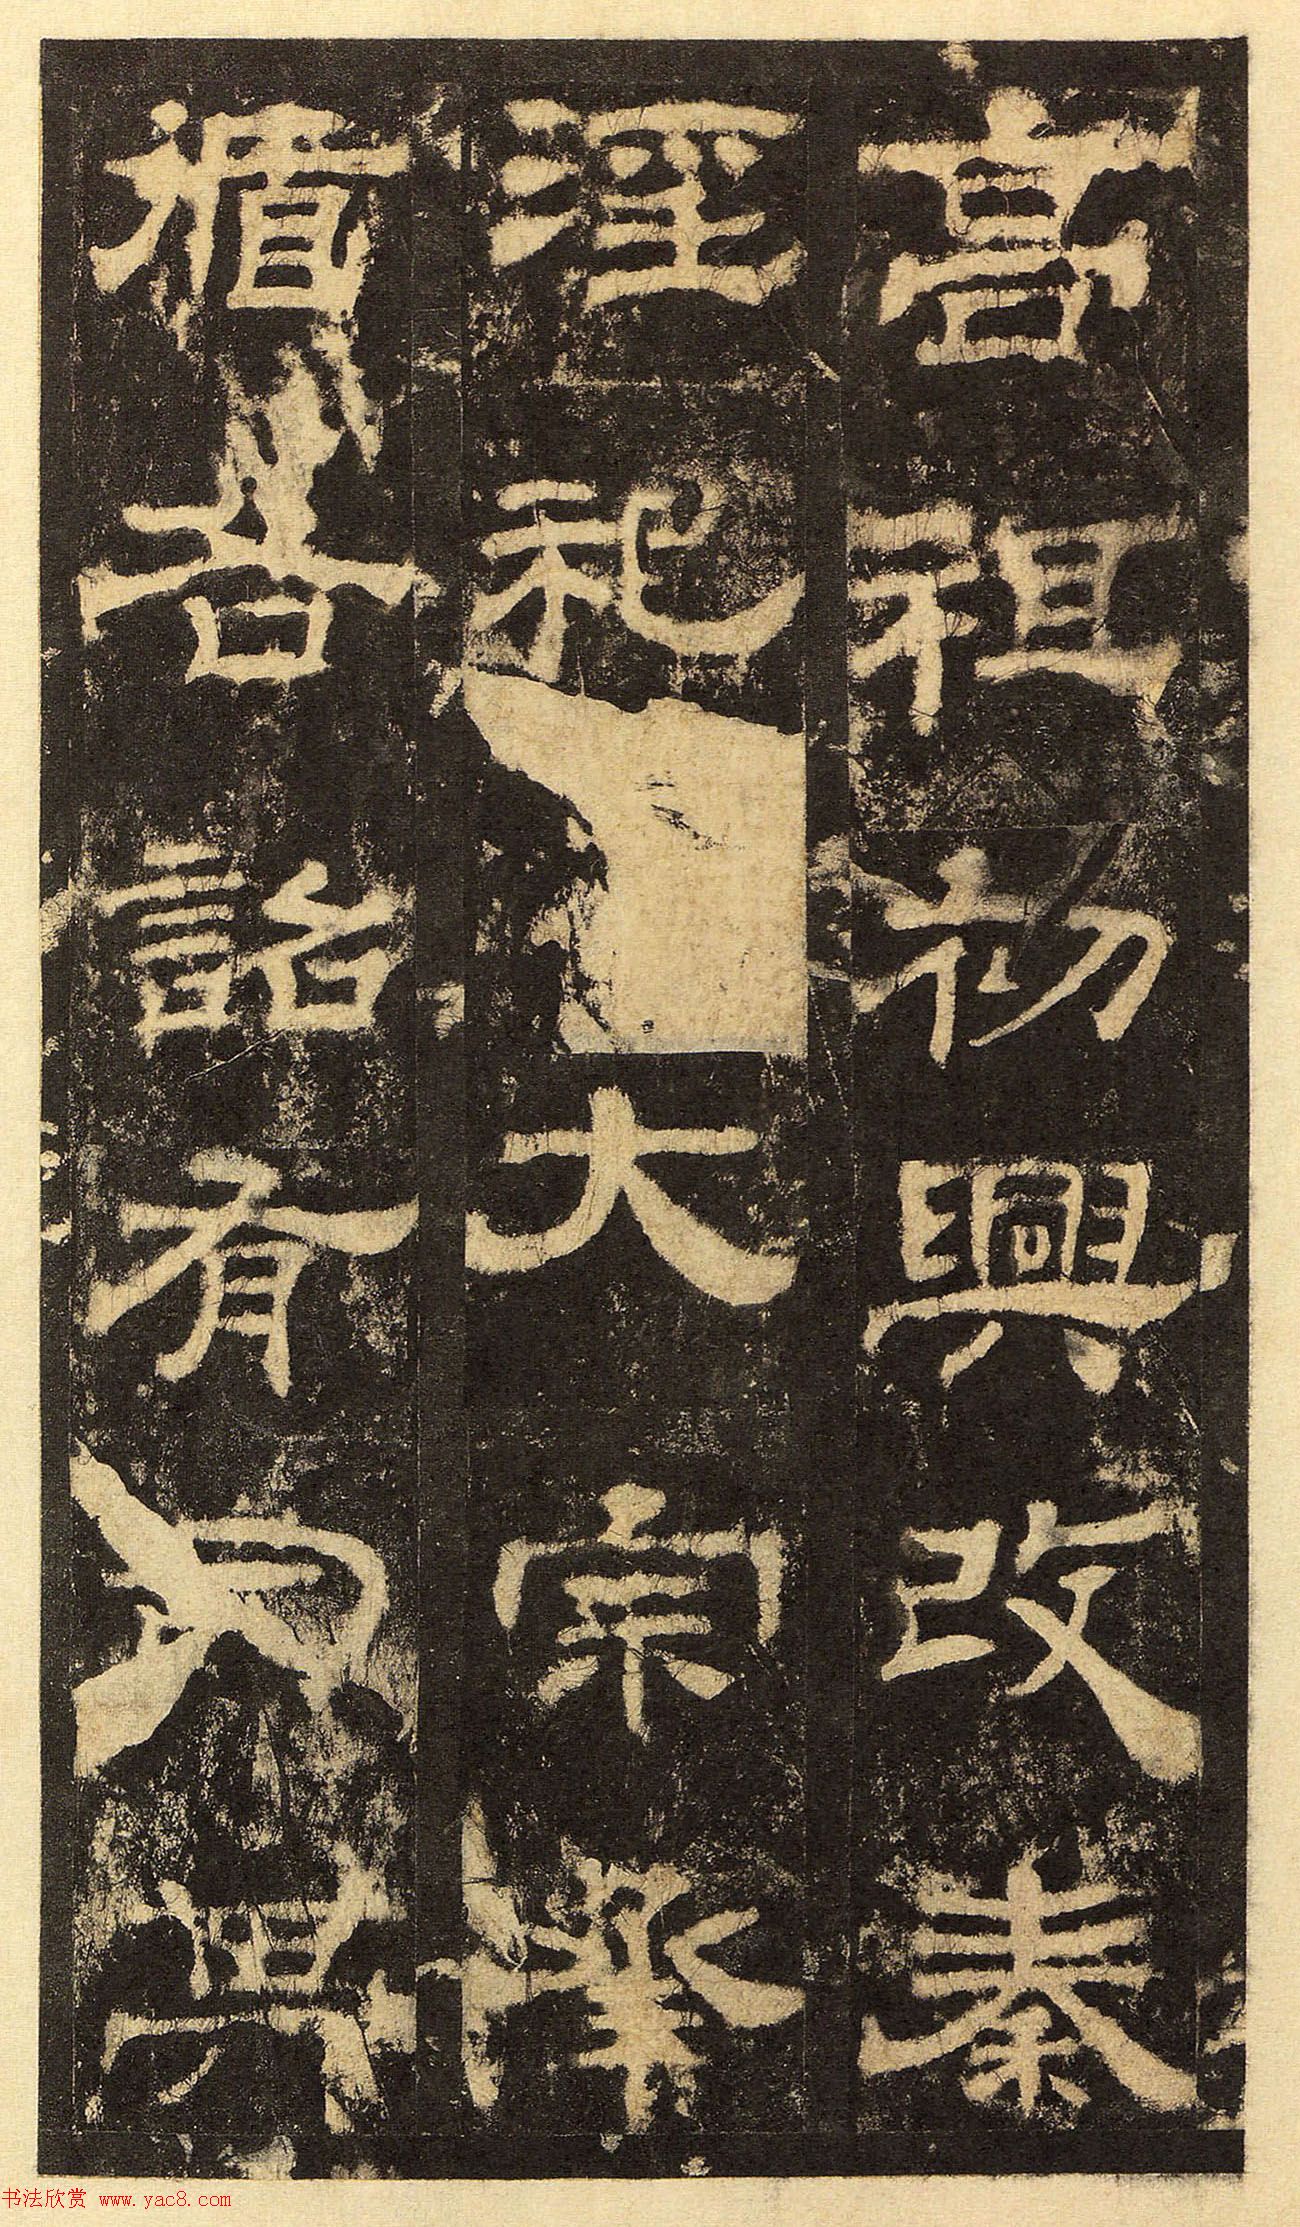 高祖初興改秦
淫祀大宗承
循各詔有司其
书法欣赏 www.yac8.com